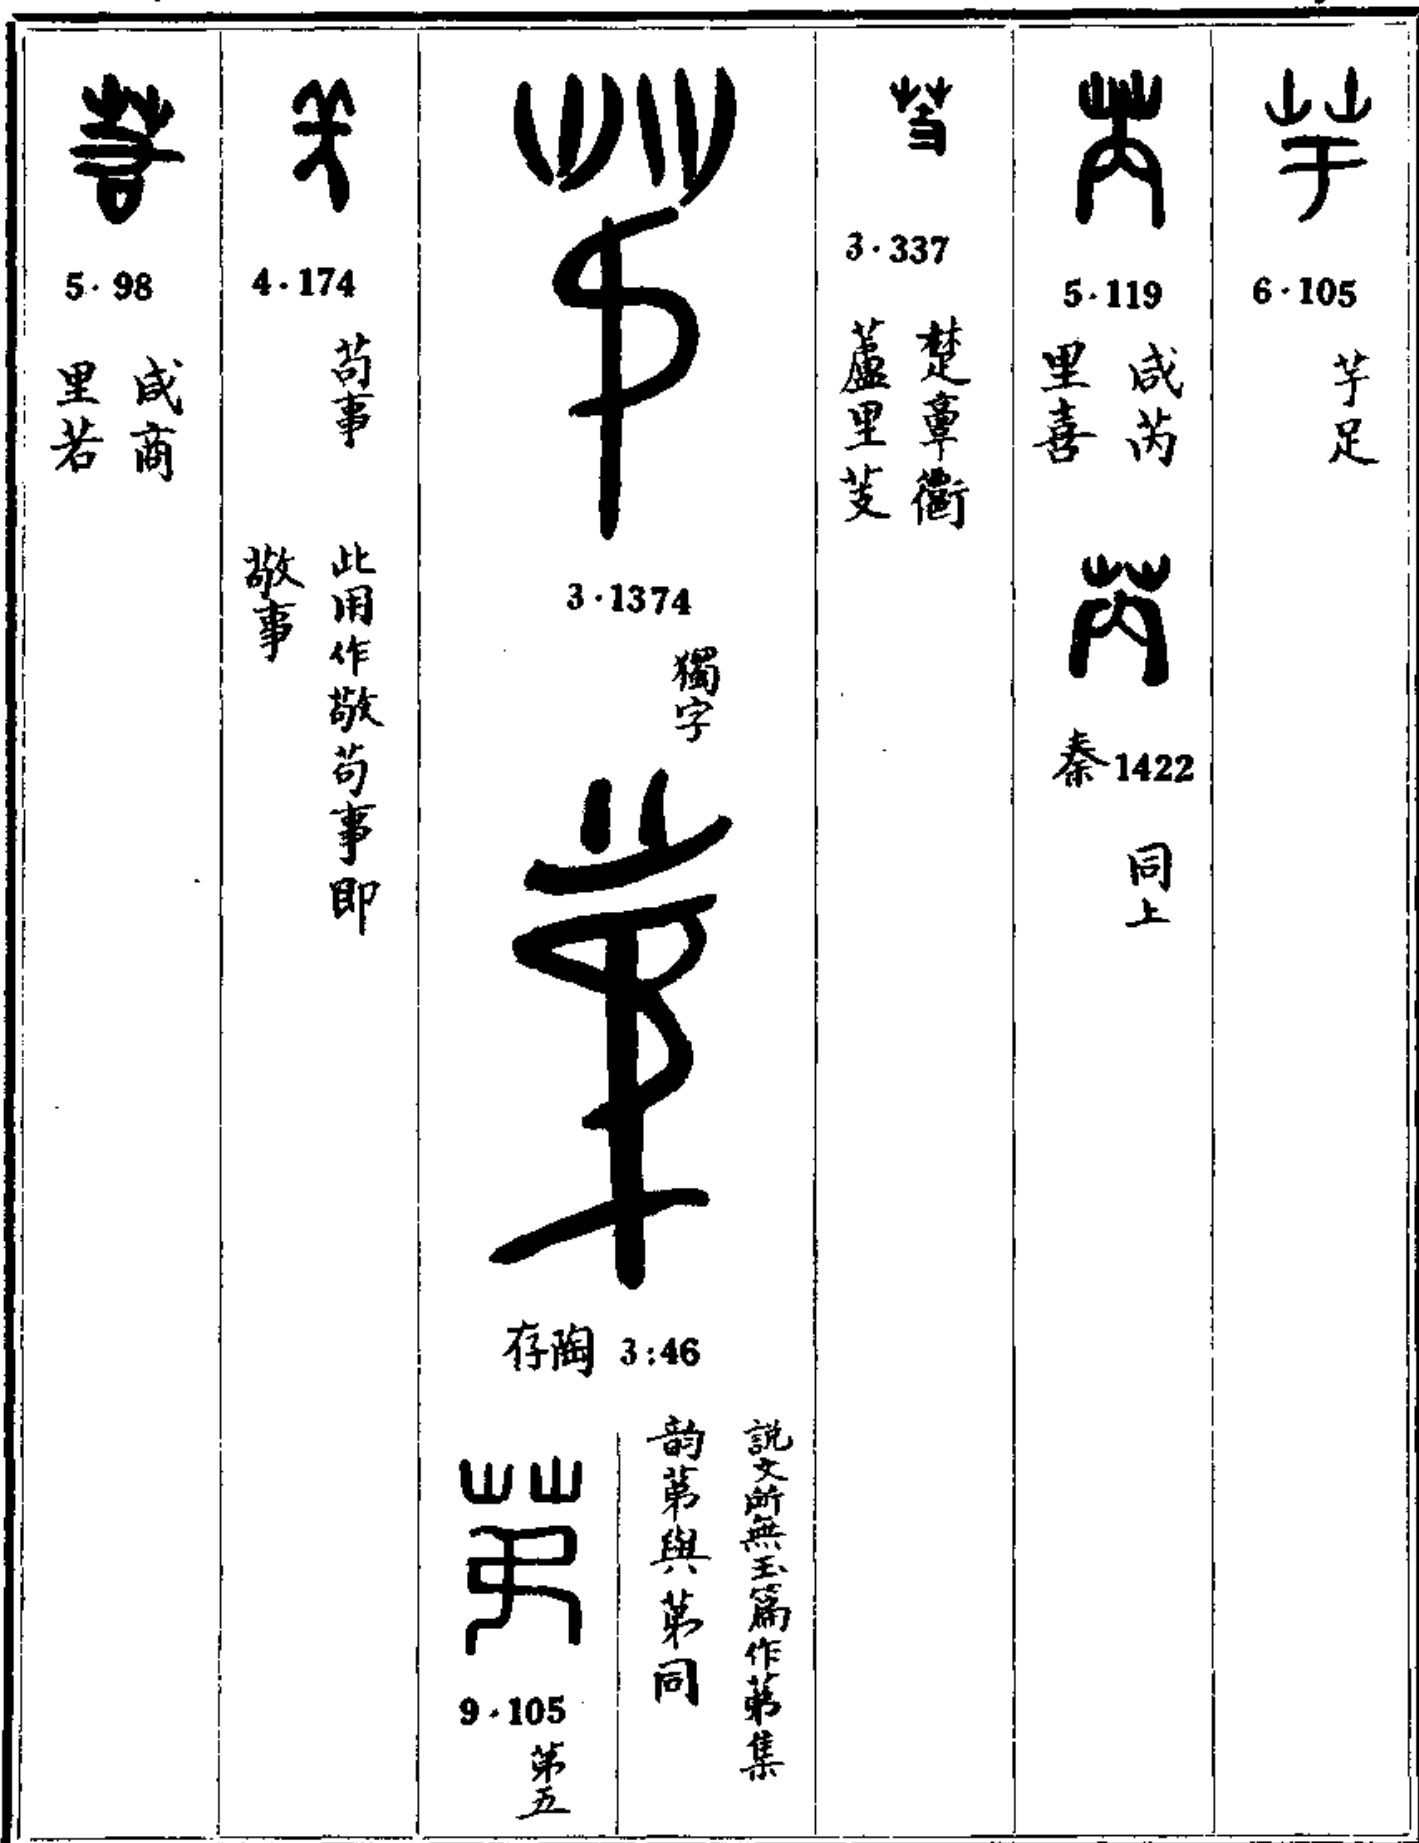 芋
6·105
芋足
芮
5·119
咸芮
里喜
芮
秦1422
同上
芰
3·337
楚𦎫衢
蘆里芰
3·1374
獨字
存陶 3:46
說文所無玉篇作苐集
韵苐與第同
9·105
第五
4·174
苟事
此用作敬苟事即
敬事
5·98
咸商
里若